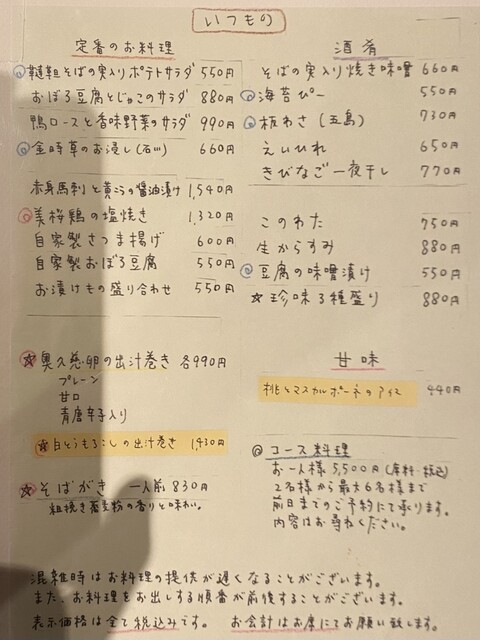 いつもの
定番のお料理
韃靼そばの実入りポテトサラダ 550円
おぼろ豆腐とじゃこのサラダ 880円
鴨ロースと香味野菜のサラダ 990円
金時草のお浸し(石川) 660円
赤身馬刺と黄ニラの醤油漬け 1,540円
美桜鶏の塩焼き 1,320円
自家製さつま揚げ 600円
自家製おぼろ豆腐 550円
お漬けもの盛り合わせ 550円
☆奥久慈卵の出汁巻き 各990円
プレーン
甘口
青唐辛子入り
☆白とうもろこしの出汁巻き 1,430円
☆そばがき 一人前 830円
粗挽き蕎麦粉の香りと味わい。
酒肴
そばの実入り焼き味噌 660円
◎海苔ぴー 550円
◎板わさ(五島) 730円
えいひれ 650円
きびなご一夜干し 770円
このわた 750円
生からすみ 880円
◎豆腐の味噌漬け 550円
☆珍味3種盛り 880円
甘味
桃とマスカルポーネのアイス 440円
◎コース料理
お一人様 5,500円(席料・税込)
2名様から最大6名様まで
前日までのご予約にて承ります。
内容はお尋ねください。
混雑時はお料理の提供が遅くなることがございます。
また、お料理をお出しする順番が前後することがございます。
表示価格は全て税込みです。 お会計はお席にてお願い致します。